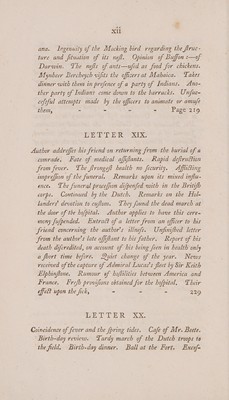 xii
ana. Ingenuity of the Mocking bird regarding the struc-
ture and situation of its nest. Opinion of Buffon :—of
Darwin. The nests of ants—used as food for chickens.
Mynheer Bercheych visits the officers at Mahaica. Takes
dinner with them in presence of a party of Indians. Ano-
ther party of Indians come down to the barracks. Unsuc-
cessful attempts made by the officers to animate or amuse
them, - - - - Page 219
LETTER XIX.
Author addresses his friend on returning from the burial of a
comrade. Fate of medical assistants. Rapid destruction
from fever. The strongest health no security. Afflicting
impression of the funeral. Remarks upon its mixed influ-
ence. The funeral procession dispensed with in the British
corps. Continued by the Dutch. Remarks on the Hol-
landers' devotion to custom. They sound the dead march at
the door of the hospital. Author applies to have this cere-
mony suspended. Extract of a letter from an officer to his
friend concerning the author's illness. Unfinished letter
from the author's late assistant to his father. Report of his
death discredited, on account of his being seen in health only
a short time before. Quiet change of the year. News
received of the capture of Admiral Lucas's fleet by Sir Keith
Elphinstone. Rumour of hostilities between America and
France. Fresh provisions obtained for the hospital. Their
effect upon the sick, - - - 229
LETTER XX.
Coincidence of fever and the spring tides. Case of Mr. Beete.
Birth-day reviews. Tardy march of the Dutch troops to
the field. Birth-day dinner. Ball at the Fort. Excess-